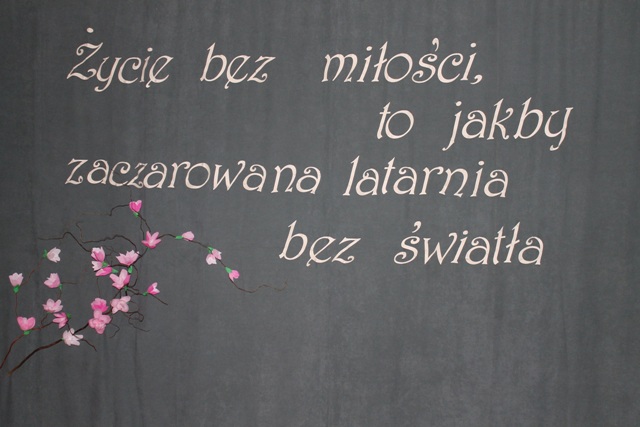 Życię bęz miłości,
to jakby
zaczarowana latarnia
bęz światła